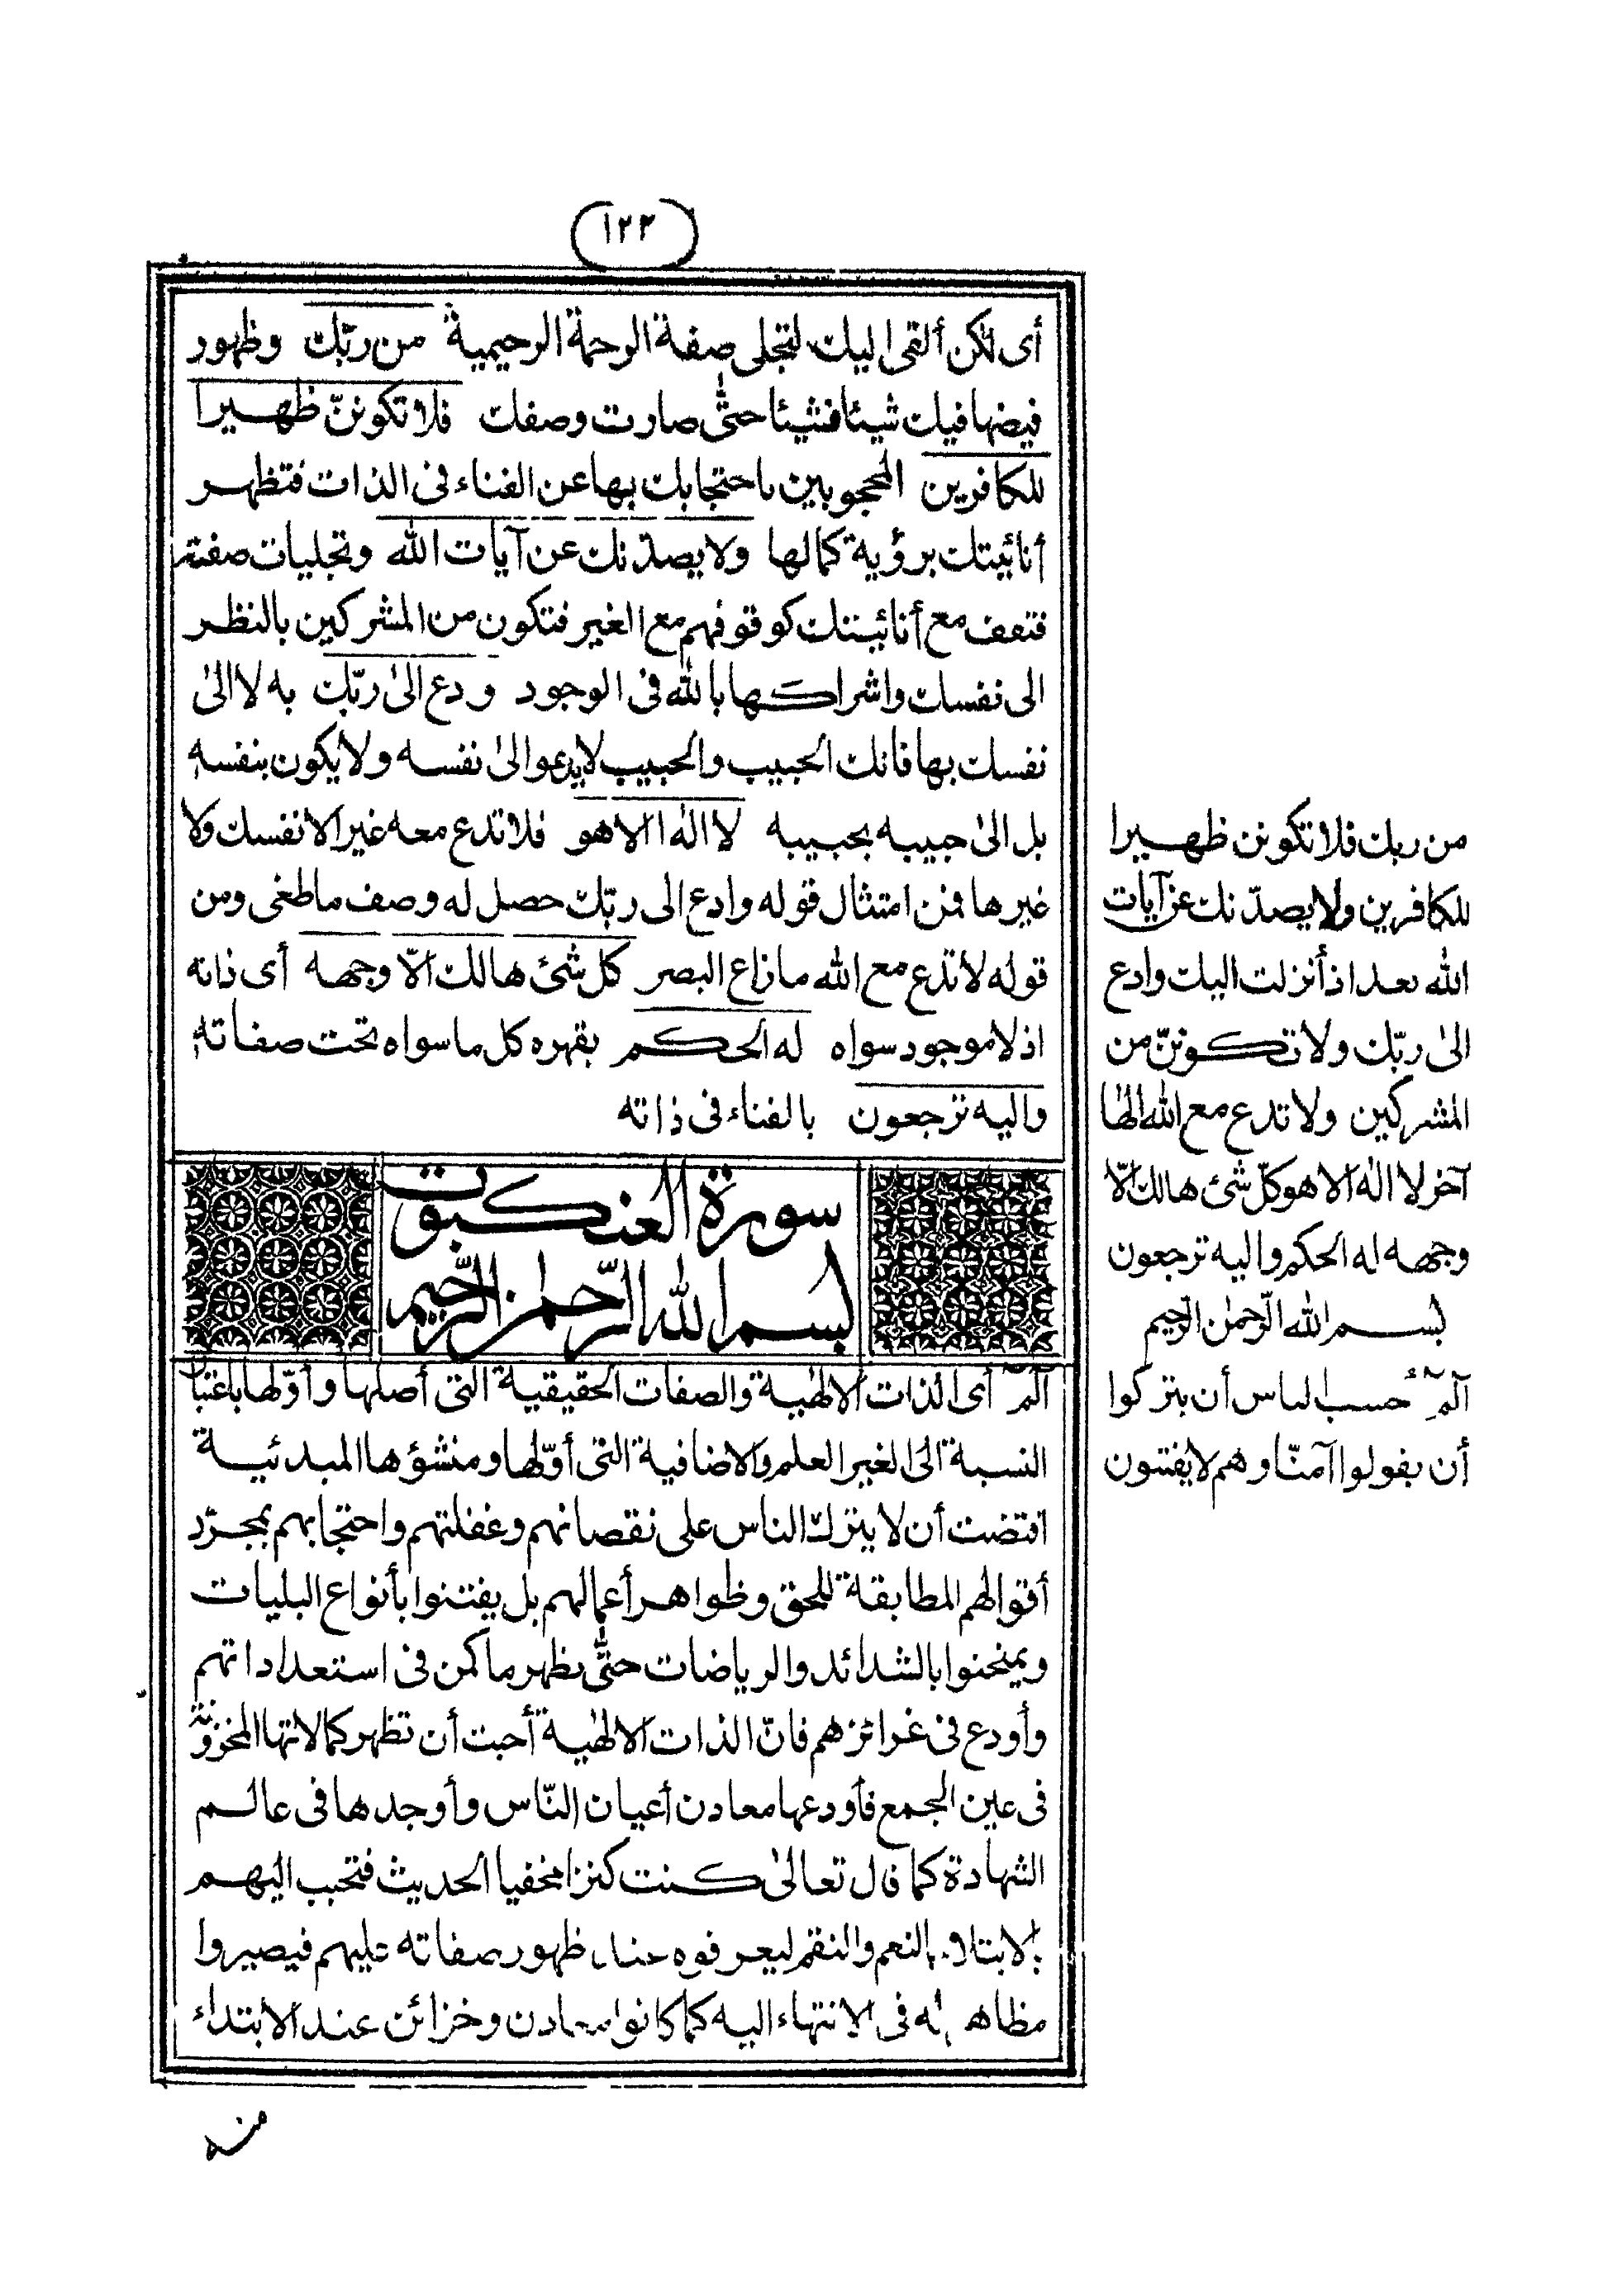 (١٢٣)
أى لكن ألقى اليك لتجلى صفة الرحمة الرحيمية من ربّك وظهور
فيضها فيك شيئا فشيئا حتّى صارت وصفك فلا تكوننّ ظهيرا
للكافرين المحجوبين باحتجابك بها عن الفناء فى الذات فتظهر
أنائيتك برؤية كمالها ولا يصدّنك عن آيات الله وتجليات صفته
فتقف مع أنائيتك كوقوفهم مع الغير فتكون من المشركين بالنظر
الى نفسك واشراكها بالله فى الوجود ودع الىٰ ربّك به لا الىٰ
نفسك بها فانك الحبيب والحبيب لا يدعو الىٰ نفسه ولا يكون بنفسه
بل الىٰ حبيبه بحبيبه لا الٰه الا هو فلا تدع معه غيرا لا نفسك ولا
غيرها فمن امتثال قوله وادع الى ربّك حصل له وصف ما طغى ومن
قوله لا تدع مع الله ما زاغ البصر كل شئ هالك الّا وجهه أى ذاته
اذ لا موجود سواه له الحكم بقهره كل ما سواه تحت صفاته
واليه ترجعون بالفناء فى ذاته
سورة العنكبوت
بسم الله الرّحمٰن الرّحيم
آلمٓ أى الذات الالٰهية والصفات الحقيقية التى أصلها وأوّلها باعتبار
النسبة الى الغير العلم والاضافية التى أوّلها ومنشؤها المبدئية
اقتضت أن لا يترك الناس على نقصانهم وغفلتهم واحتجابهم بمجرّد
أقوالهم المطابقة للحق وظواهر أعمالهم بل يفتنوا بأنواع البليات
ويمتحنوا بالشدائد والرياضات حتّى يظهر ما كمن فى استعداداتهم
وأودع فى غرائزهم فانّ الذات الالٰهية أحبت أن تظهر كمالاتها المخزونة
فى عين الجمع فأودعها معادن أعيان النّاس وأوجدها فى عالم
الشهادة كما قال تعالىٰ كنت كنزا مخفيا الحديث فتحبب اليهم
بالابتلاء بالنعم والنقم ليعرفوه عند ظهور صفاته عليهم فيصيروا
مظاهر له فى الانتهاء اليه كما كانوا معادن وخزائن عند الابتداء
منه
من ربك فلا تكونن ظهيرا
للكافرين ولا يصدّنك عن آيات
الله بعد اذ أنزلت اليك وادع
الىٰ ربّك ولا تكوننّ من
المشركين ولا تدع مع الله الٰها
آخر لا الٰه الا هو كلّ شئ هالك الّا
وجهه له الحكم واليه ترجعون
بسم الله الرّحمٰن الرّحيم
آلمٓ أحسب الناس أن يتركوا
أن يقولوا آمنّا وهم لا يفتنون